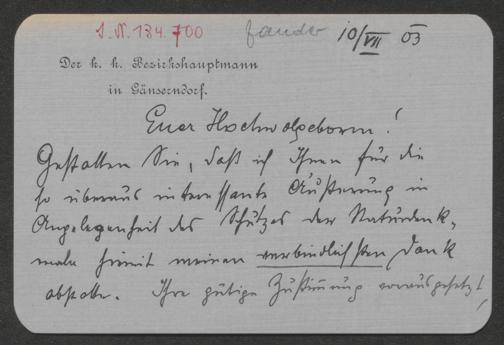 I. N. 134.700
10/VII 03
Der k. k. Bezirkshauptmann
in Gänserndorf.
Euer Hochwolgeboren!
Gestatten Sie, daß ich Ihnen für die
so überaus interessante Äußerung in
Angelegenheit des Schutzes der Naturdenk-
male hiemit meinen verbindlichsten Dank
abstatte. Ihre gütige Zustimmung vorausgesetzt,